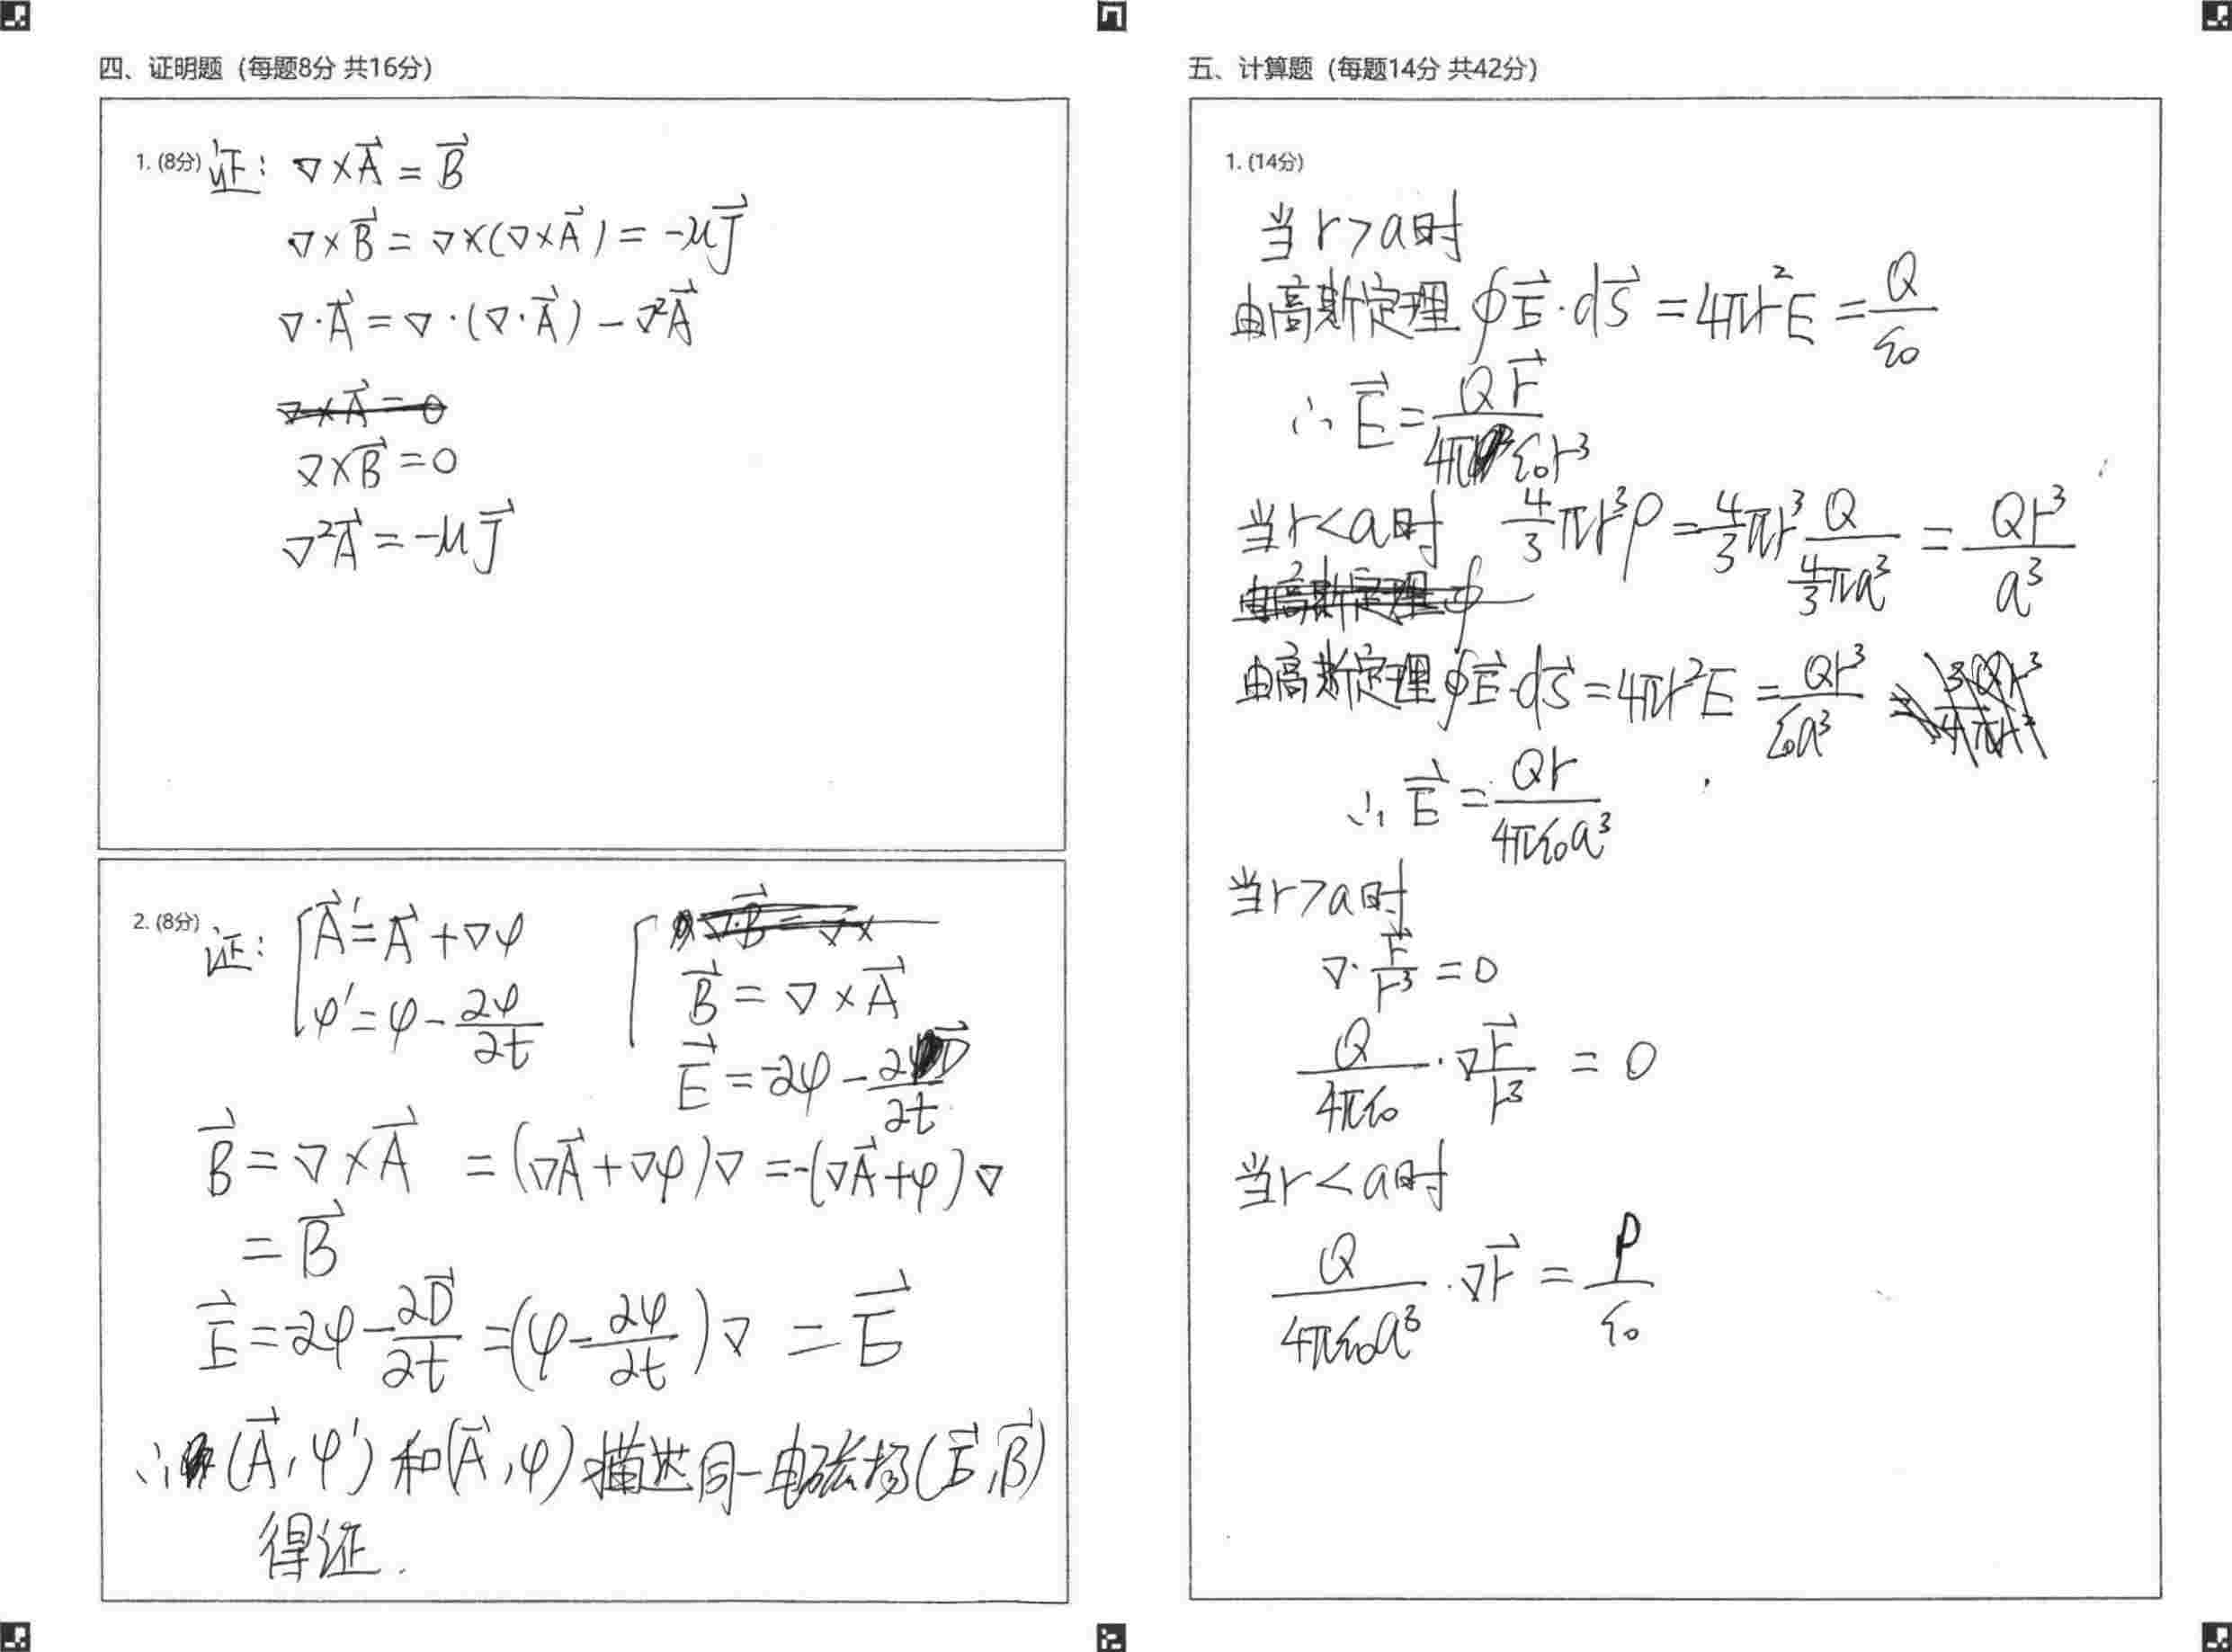 四、证明题（每题8分 共16分）
1. (8分) 证： ∇×A⃗ = B⃗
∇×B⃗ = ∇×(∇×A⃗) = -μJ⃗
∇·A⃗ = ∇·(∇·A⃗) - ∇²A⃗
∇×A⃗ = 0
∇×B⃗ = 0
∇²A⃗ = -μJ⃗
2. (8分) 证： { A⃗' = A⃗ + ∇φ
φ' = φ - ∂φ/∂t
∇·B⃗ = ∇×
B⃗ = ∇×A⃗
E⃗ = -∂φ - ∂D⃗/∂t
B⃗ = ∇×A⃗ = (∇A⃗+∇φ)∇ = -(∇A⃗+φ)∇
= B⃗
E⃗ = -∂φ - ∂D⃗/∂t = (φ - ∂φ/∂t)∇ = E⃗
∴ (A⃗, φ') 和 (A⃗, φ) 描述同一电磁场 (E⃗, B⃗)
得证.
五、计算题（每题14分 共42分）
1. (14分)
当r>a时
由高斯定理 ∮E⃗·dS⃗ = 4πr²E = Q/ε₀
∴ E⃗ = Qr⃗/4πε₀r³
当r<a时 4/3 πr³ρ = 4/3 πr³ Q/(4/3 πa³) = Qr³/a³
由高斯定理 ∮
由高斯定理 ∮E⃗·dS⃗ = 4πr²E = Qr³/ε₀a³
∴ E⃗ = Qr/4πε₀a³
当r>a时
∇· r⃗/r³ = 0
Q/4πε₀ · ∇ r⃗/r³ = 0
当r<a时
Q/4πε₀a³ · ∇r⃗ = ρ/ε₀